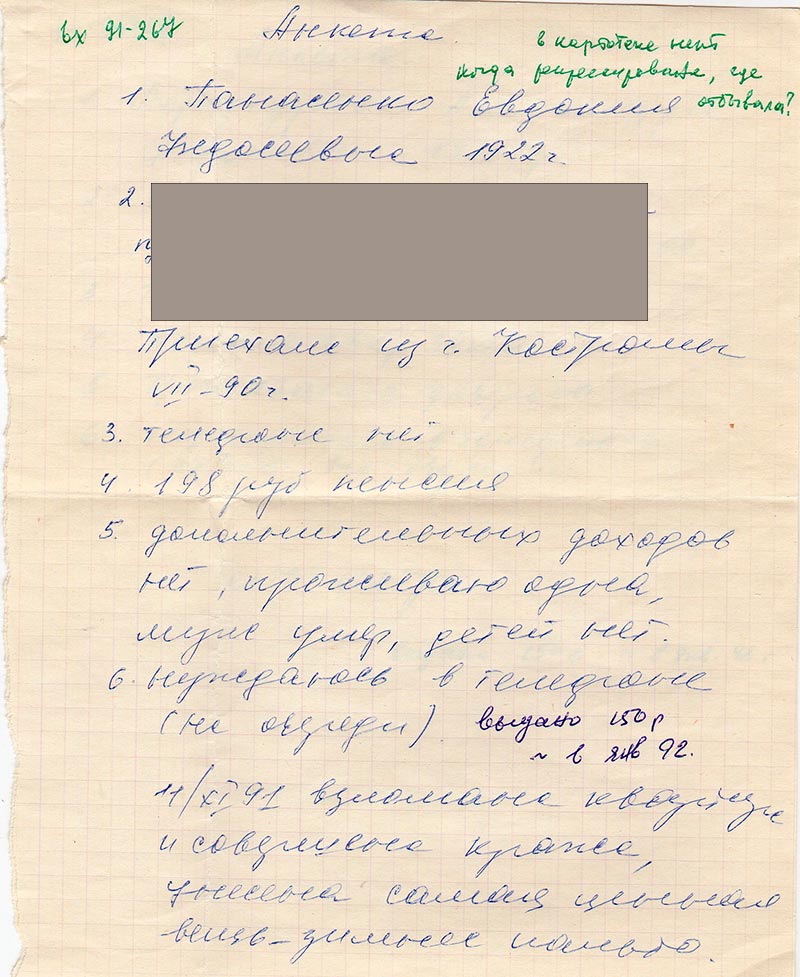 вх 91-267
Анкета
в картотеке нет
когда репрессирована, где
отбывала?
1. Панасенко Евдокия
1922 г.
2.
Приехала из г. Костромы
VII-90 г.
3. телефона нет
4. 198 руб пенсия
5. дополнительных доходов
нет, проживаю одна,
муж умер, детей нет.
6. нуждаюсь в телефоне
(на очереди)
выдано 150 р
~ в янв 92.
11/XI 91 взломана квартира
и совершена кража,
унесена самая ценная
вещь - зимнее пальто.